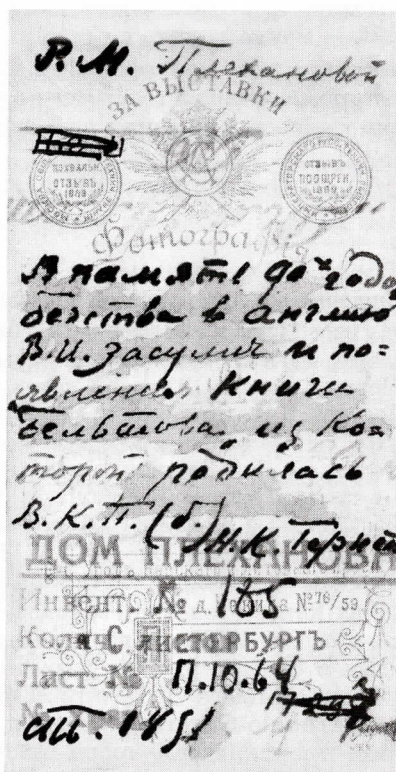 Р. М. Плехановой
ЗА ВЫСТАВКИ
ПОХВАЛЬН.
ОТЗЫВЪ
1889
ОТЗЫВЪ
ПООЩРЕН.
Фотографія
В память до года
бегства в Англию
В. И. Засулич и по=
явления Книги
Бельтова из Ко=
торой родилась
В. К. П. (б.)
Н. К. Гернет
ДОМ ПЛЕХАНОВА
Инвент. № 165
№ 76/59
С. ПЕТЕРБУРГЪ
Лист № П.10.64